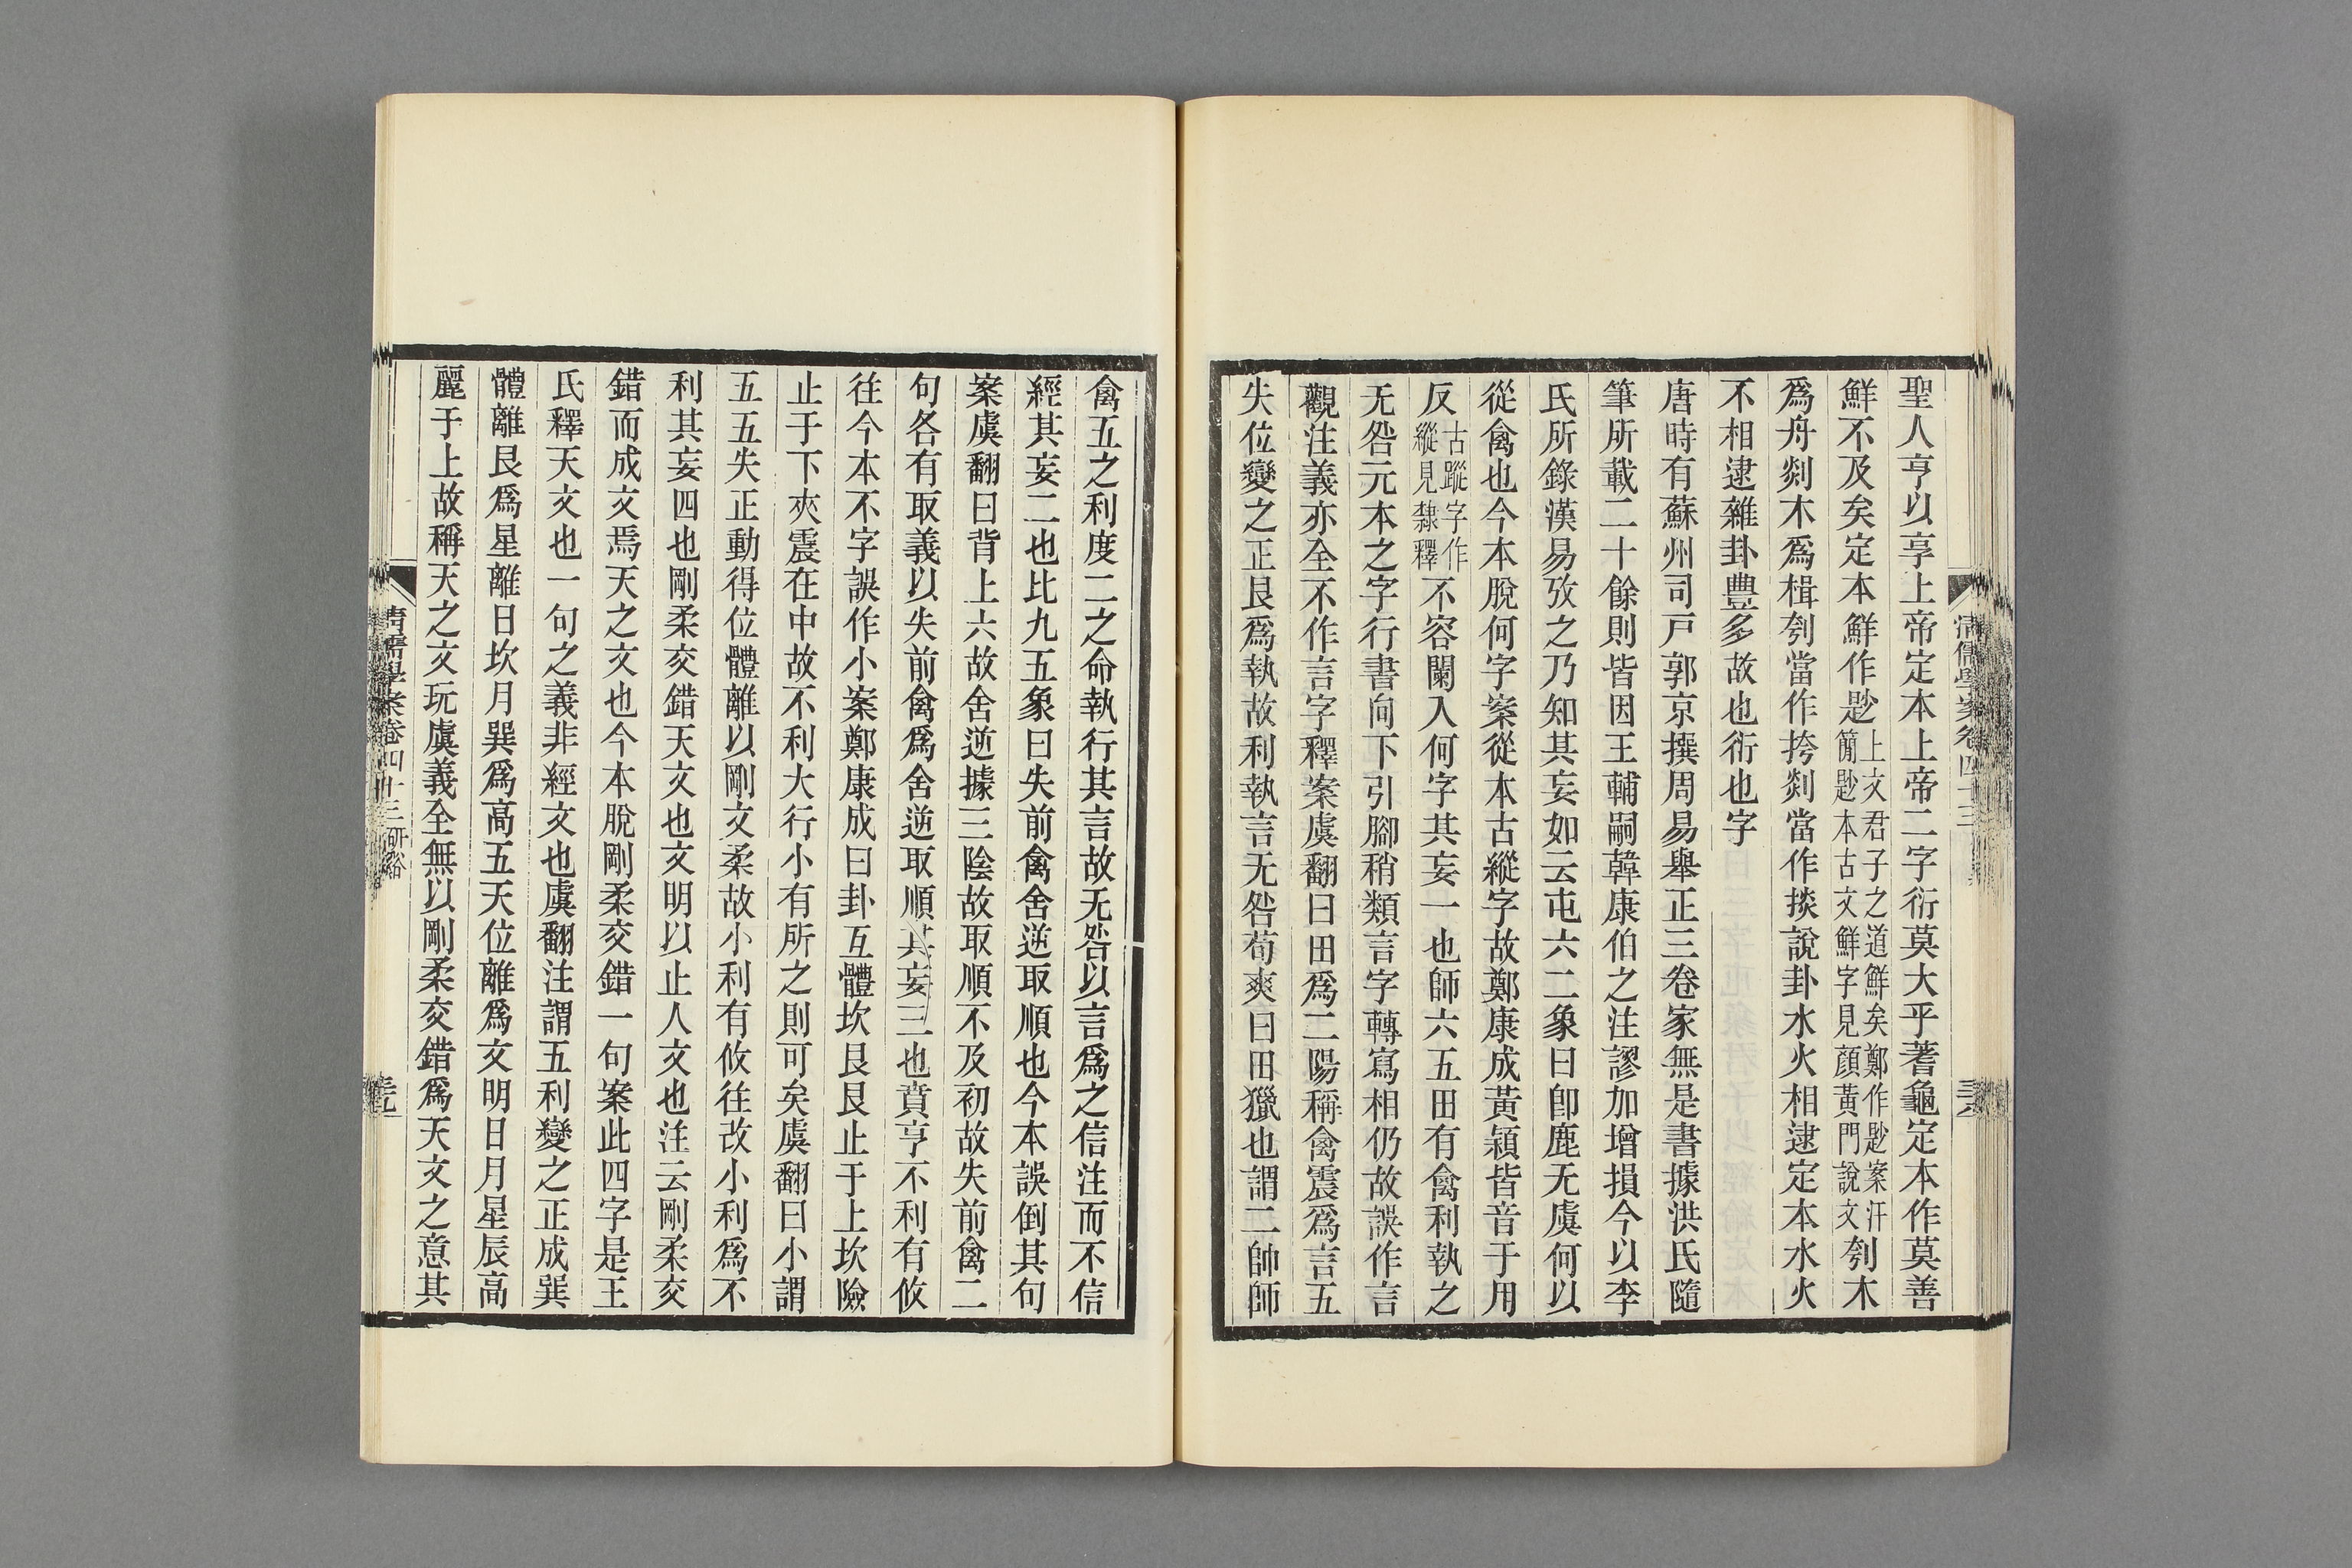 聖人亨以享上帝定本上帝二字衍莫大乎蓍龜定本作莫善
鮮不及矣定本鮮作尟上文君子之道鮮矣鄭作尟案汗簡尟本古文鮮字見顏黃門說文刳木
爲舟剡木爲楫刳當作挎剡當作掞說卦水火相逮定本水火
不相逮雜卦豐多故也衍也字
唐時有蘇州司戸郭京撰周易舉正三卷家無是書據洪氏隨
筆所載二十餘則皆因王輔嗣韓康伯之注謬加增損今以李
氏所錄漢易攷之乃知其妄如云屯六二象曰卽鹿无虞何以
從禽也今本脫何字案從本古縱字故鄭康成黃穎皆音于用
反古蹤字作縱見隸釋不容闌入何字其妄一也師六五田有禽利執之
无咎元本之字行書向下引腳稍類言字轉寫相仍故誤作言
觀注義亦全不作言字釋案虞翻曰田爲二陽稱禽震爲言五
失位變之正艮爲執故利執言无咎荀爽曰田獵也謂二帥師
禽五之利度二之命執行其言故无咎以言爲之信注而不信
經其妄二也比九五象曰失前禽舍逆取順也今本誤倒其句
案虞翻曰背上六故舍逆據三陰故取順不及初故失前禽二
句各有取義以失前禽爲舍逆取順其妄三也賁亨不利有攸
往今本不字誤作小案鄭康成曰卦互體坎艮艮止于上坎險
止于下夾震在中故不利大行小有所之則可矣虞翻曰小謂
五五失正動得位體離以剛文柔故小利有攸往改小利爲不
利其妄四也剛柔交錯天文也文明以止人文也注云剛柔交
錯而成文焉天之文也今本脫剛柔交錯一句案此四字是王
氏釋天文也一句之義非經文也虞翻注謂五利變之正成巽
體離艮爲星離日坎月巽爲高五天位離爲文明日月星辰高
麗于上故稱天之文玩虞義全無以剛柔交錯爲天文之意其
清儒學案卷四十三研谿